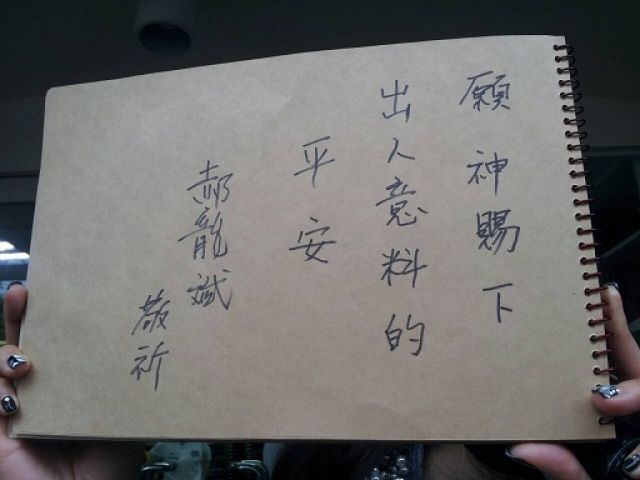 願神賜下
出人意料的
平安
郝龍斌
敬祈